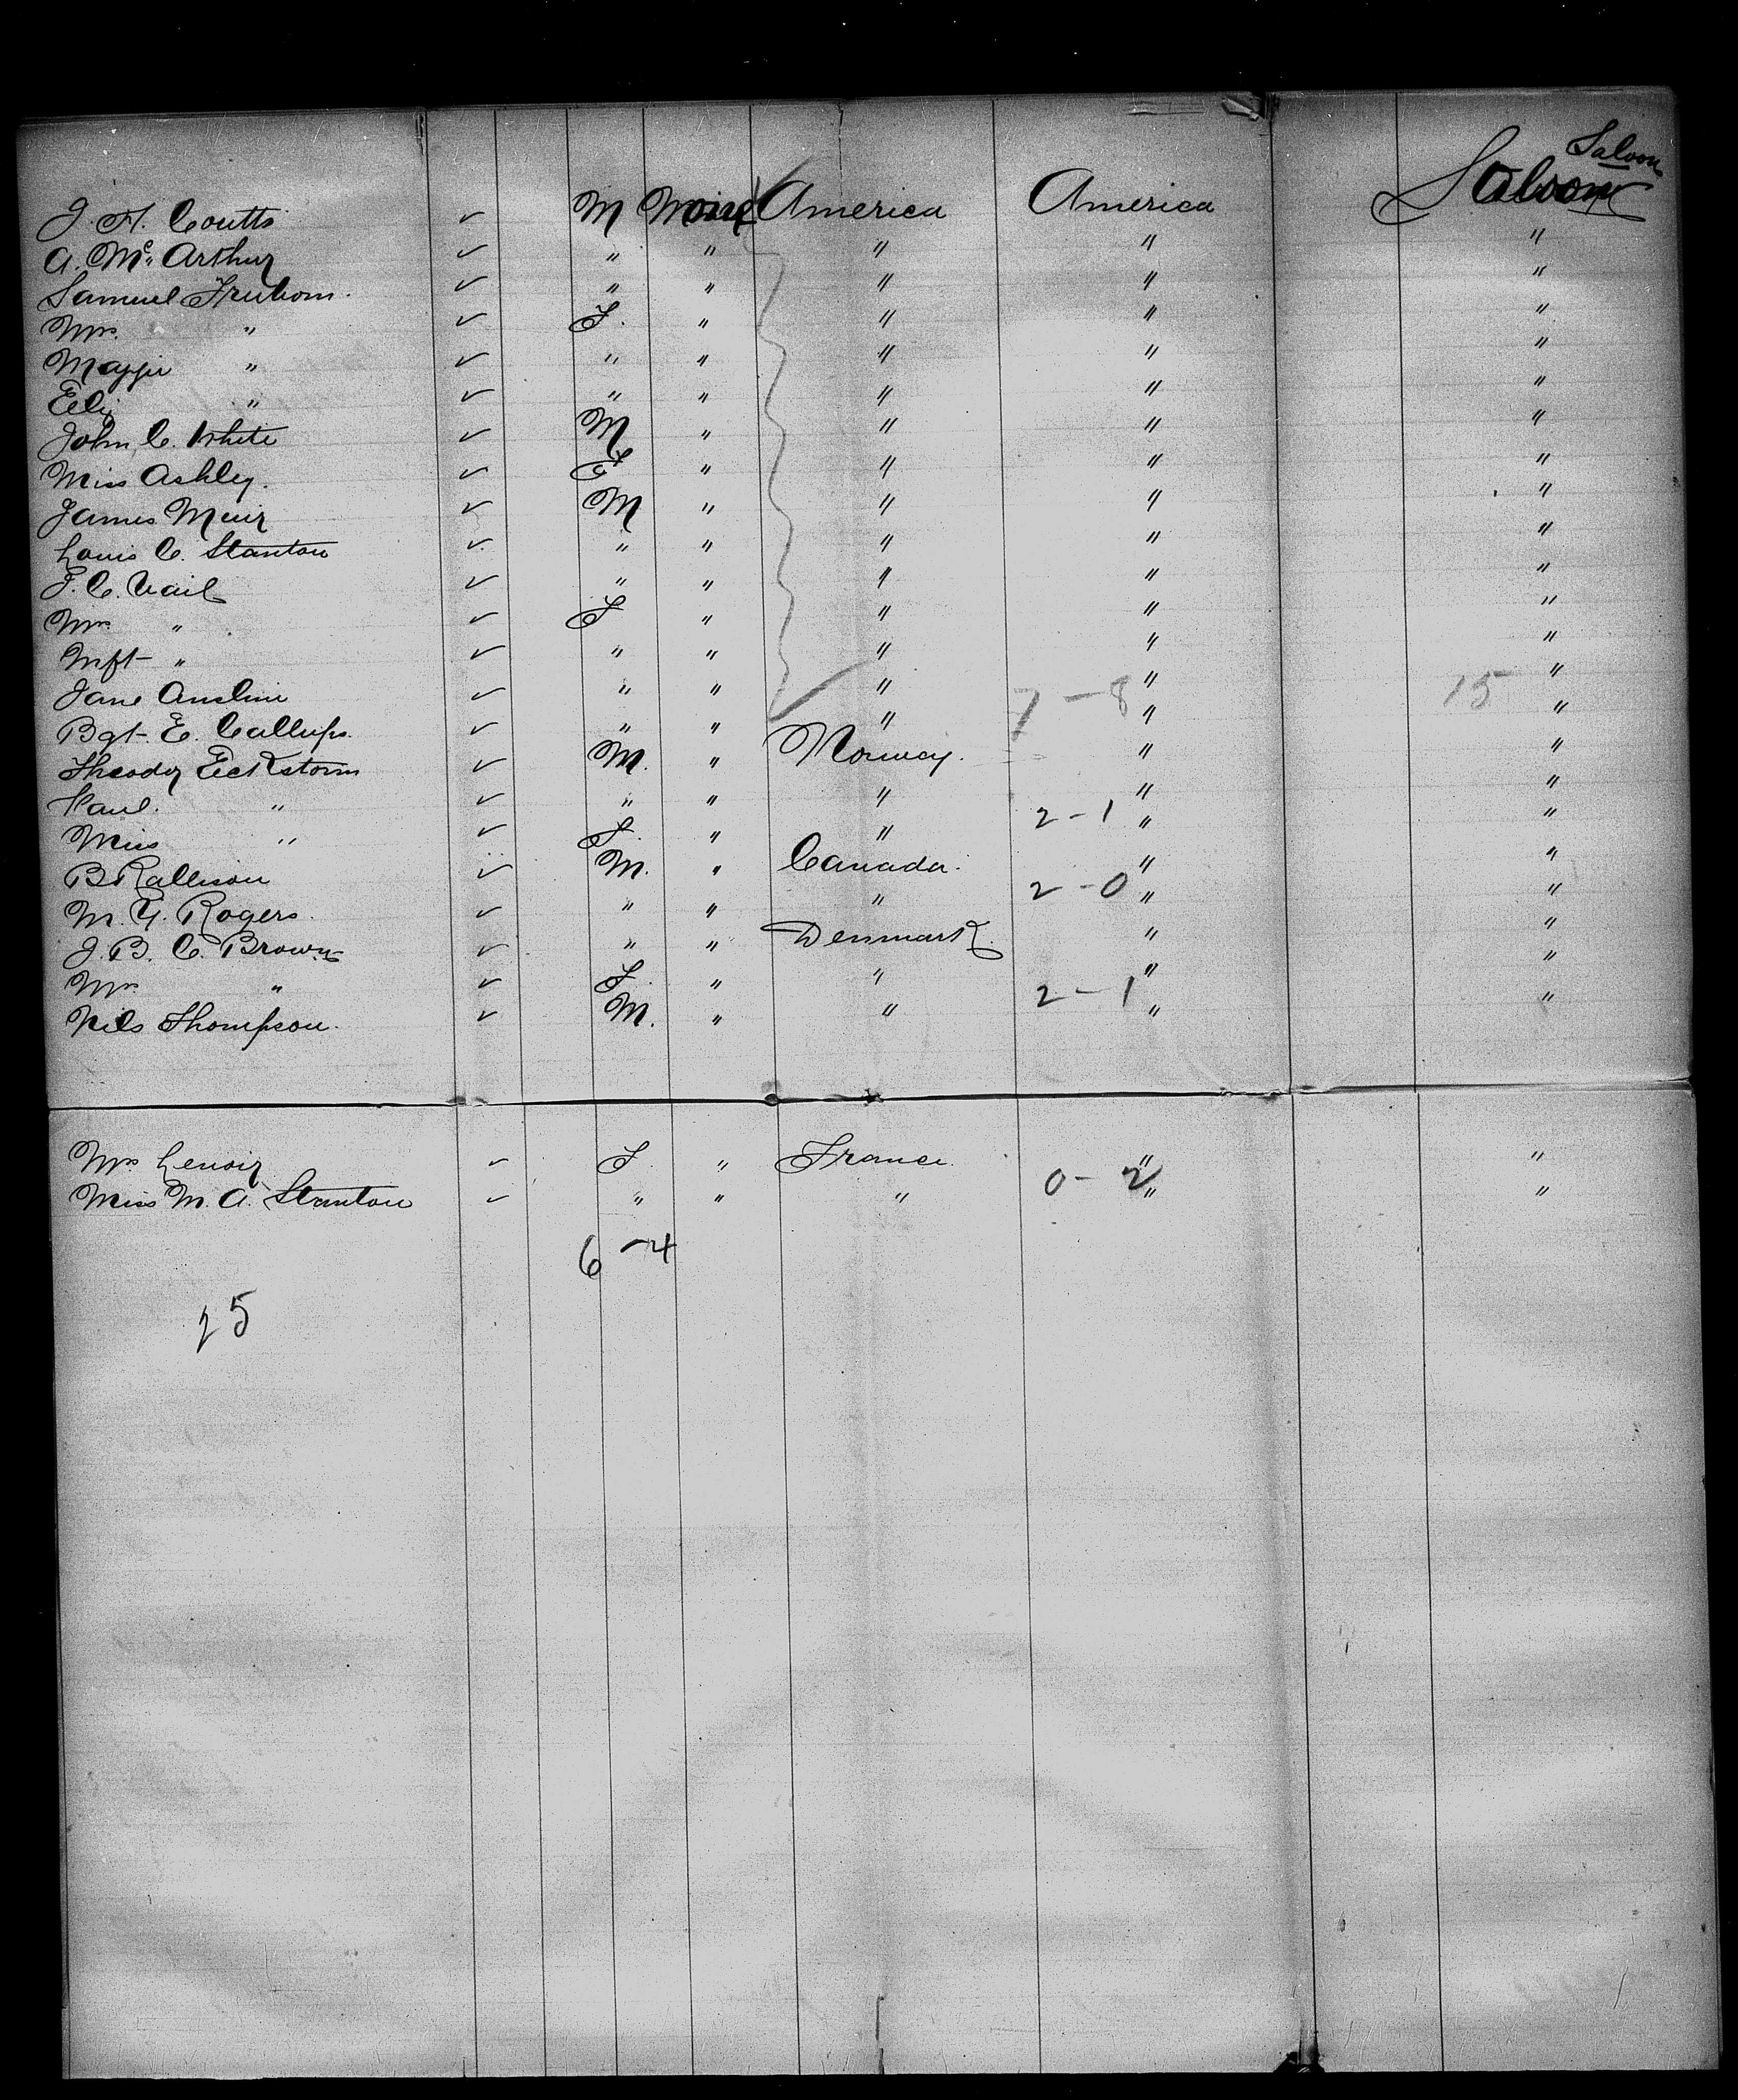 Saloon
J. H. Coutts ✓ M None America America Saloon
A. Mc Arthur ✓ " " " " "
Samuel Truhom. ✓ " " " " "
Mrs. " ✓ F. " " " "
Maggie " ✓ " " " " "
Eliz " ✓ " " " " "
John C. White ✓ M " " " "
Miss Ashley. ✓ F " " " "
James Muir ✓ M " " " "
Louis C. Stanton ✓ " " " " "
T. C. Vail ✓ " " " " "
Mrs " ✓ F " " " "
Inft " ✓ " " " " "
Jane ✓ " " " " "
7 - 8 15
Bgt. E. ✓ " " " " "
Theodor Eckstorm ✓ M. " Norway. " "
Paul. " ✓ " " " " "
2 - 1
Miss " ✓ F. " " " "
B Rallison ✓ M. " Canada. " "
2 - 0
M. Y. Rogers. ✓ " " " " "
J. B. C. Brown ✓ " " Denmark. " "
Mrs " ✓ F. " " " "
2 - 1
Nils Thompson. ✓ M. " " " "
Mrs Lenoir ✓ F. " France. " "
0 - 2
Miss M. A. Stanton ✓ " " " " "
6 - 4
25